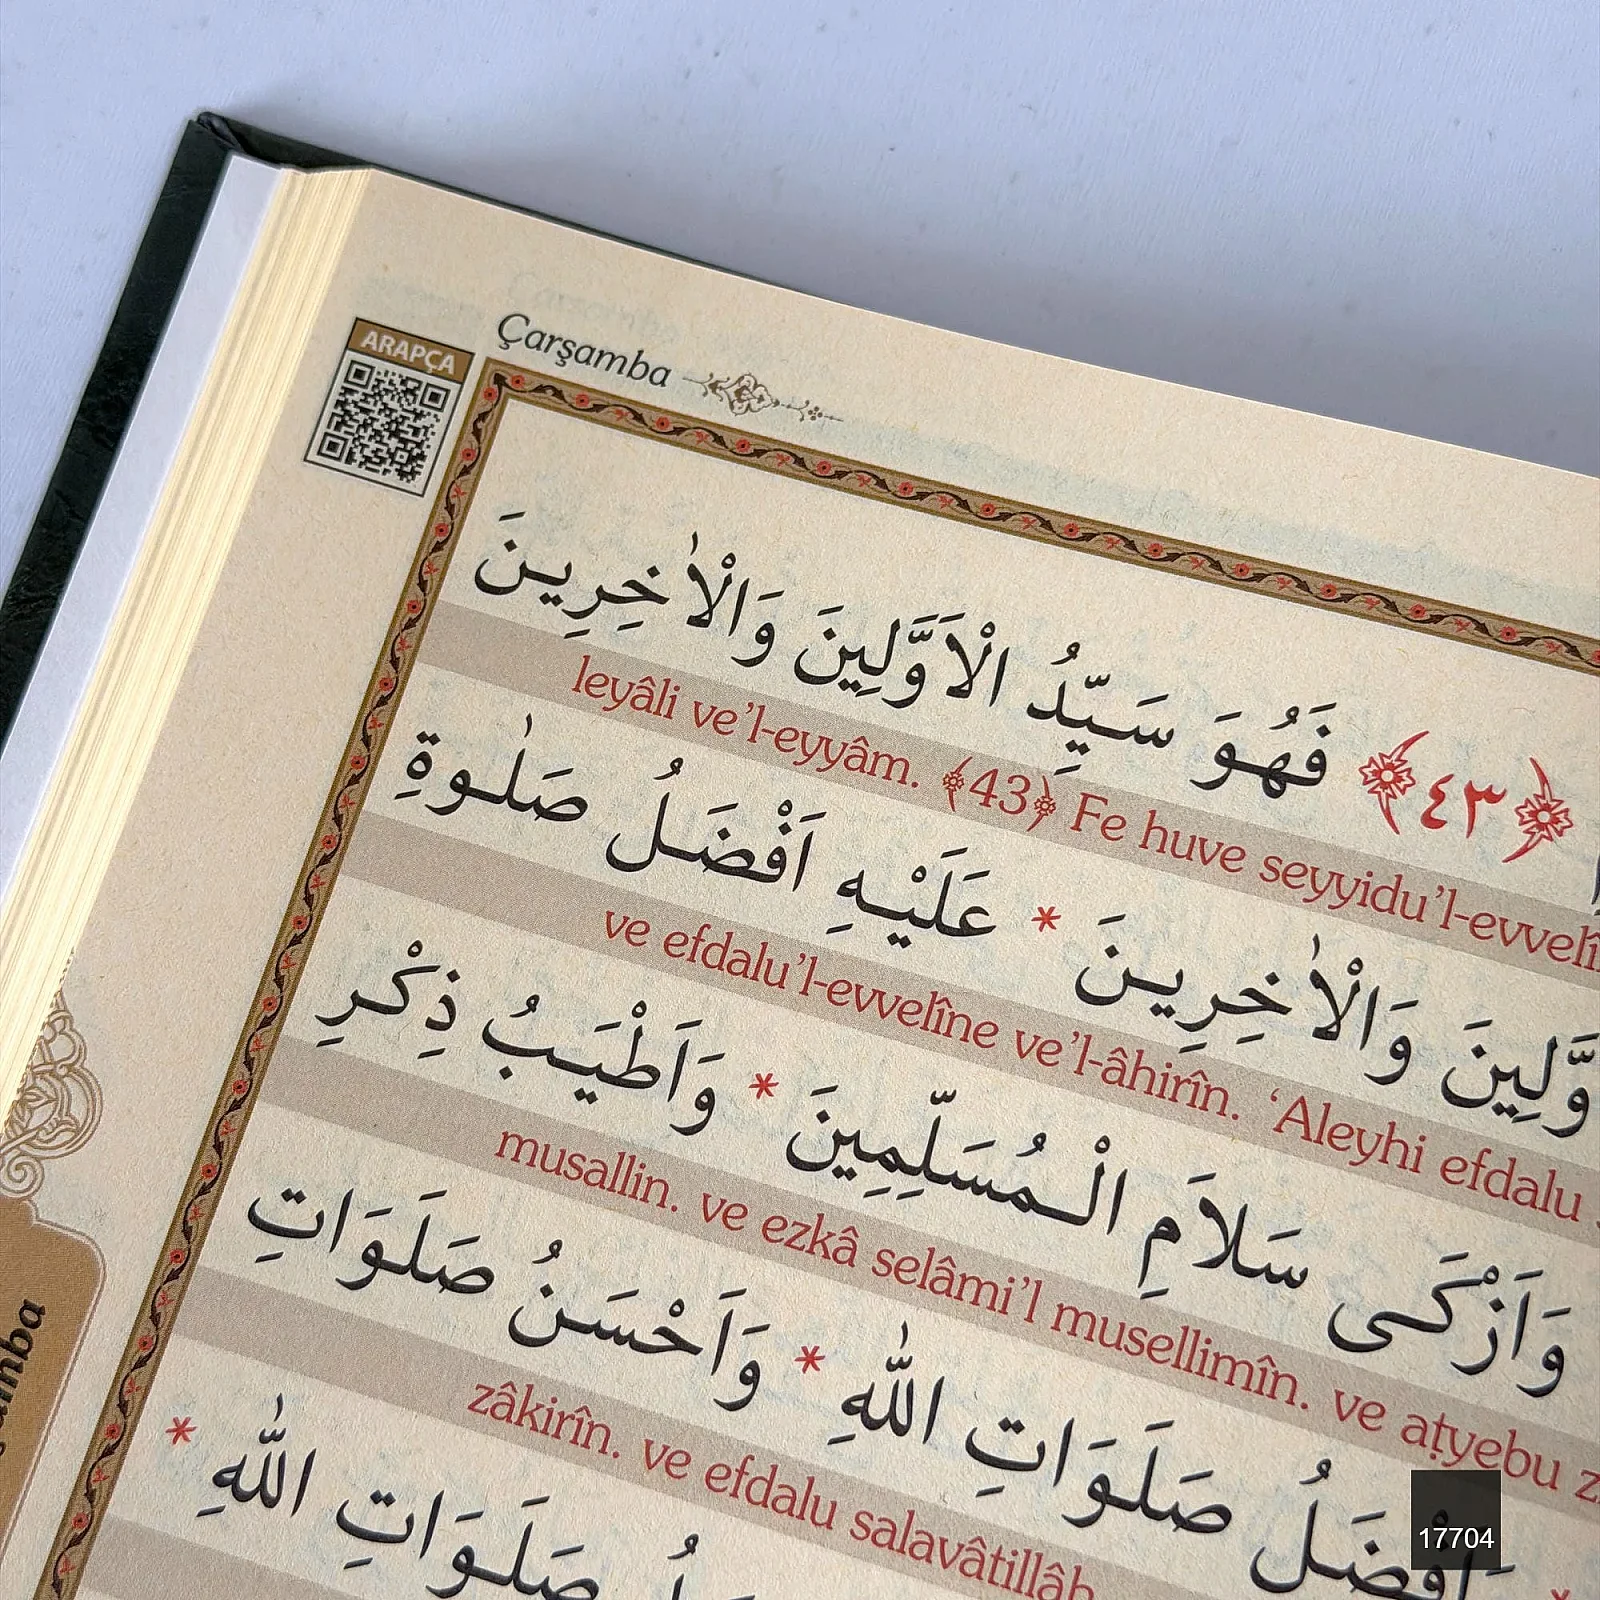 Çarşamba
ARAPÇA
﴿٤٣﴾ فَهُوَ سَيِّدُ الْاَوَّلِينَ وَالْاٰخِرِينَ
leyâli ve'l-eyyâm. ﴾43﴿ Fe huve seyyidu'l-evvelî
وَّلِينَ وَالْاٰخِرِينَ * عَلَيْهِ اَفْضَلُ صَلٰوةِ
ve efdalu'l-evvelîne ve'l-âhirîn. ‘Aleyhi efdalu
وَاَزْكَى سَلاَمِ الْمُسَلِّمِينَ * وَاَطْيَبُ ذِكْرِ
musallin. ve ezkâ selâmi'l musellimîn. ve aṭyebu z
اَفْضَلُ صَلَوَاتِ اللّٰهِ * وَاَحْسَنُ صَلَوَاتِ
zâkirîn. ve efdalu salavâtillâh
صَلَوَاتِ اللّٰهِ *
17704